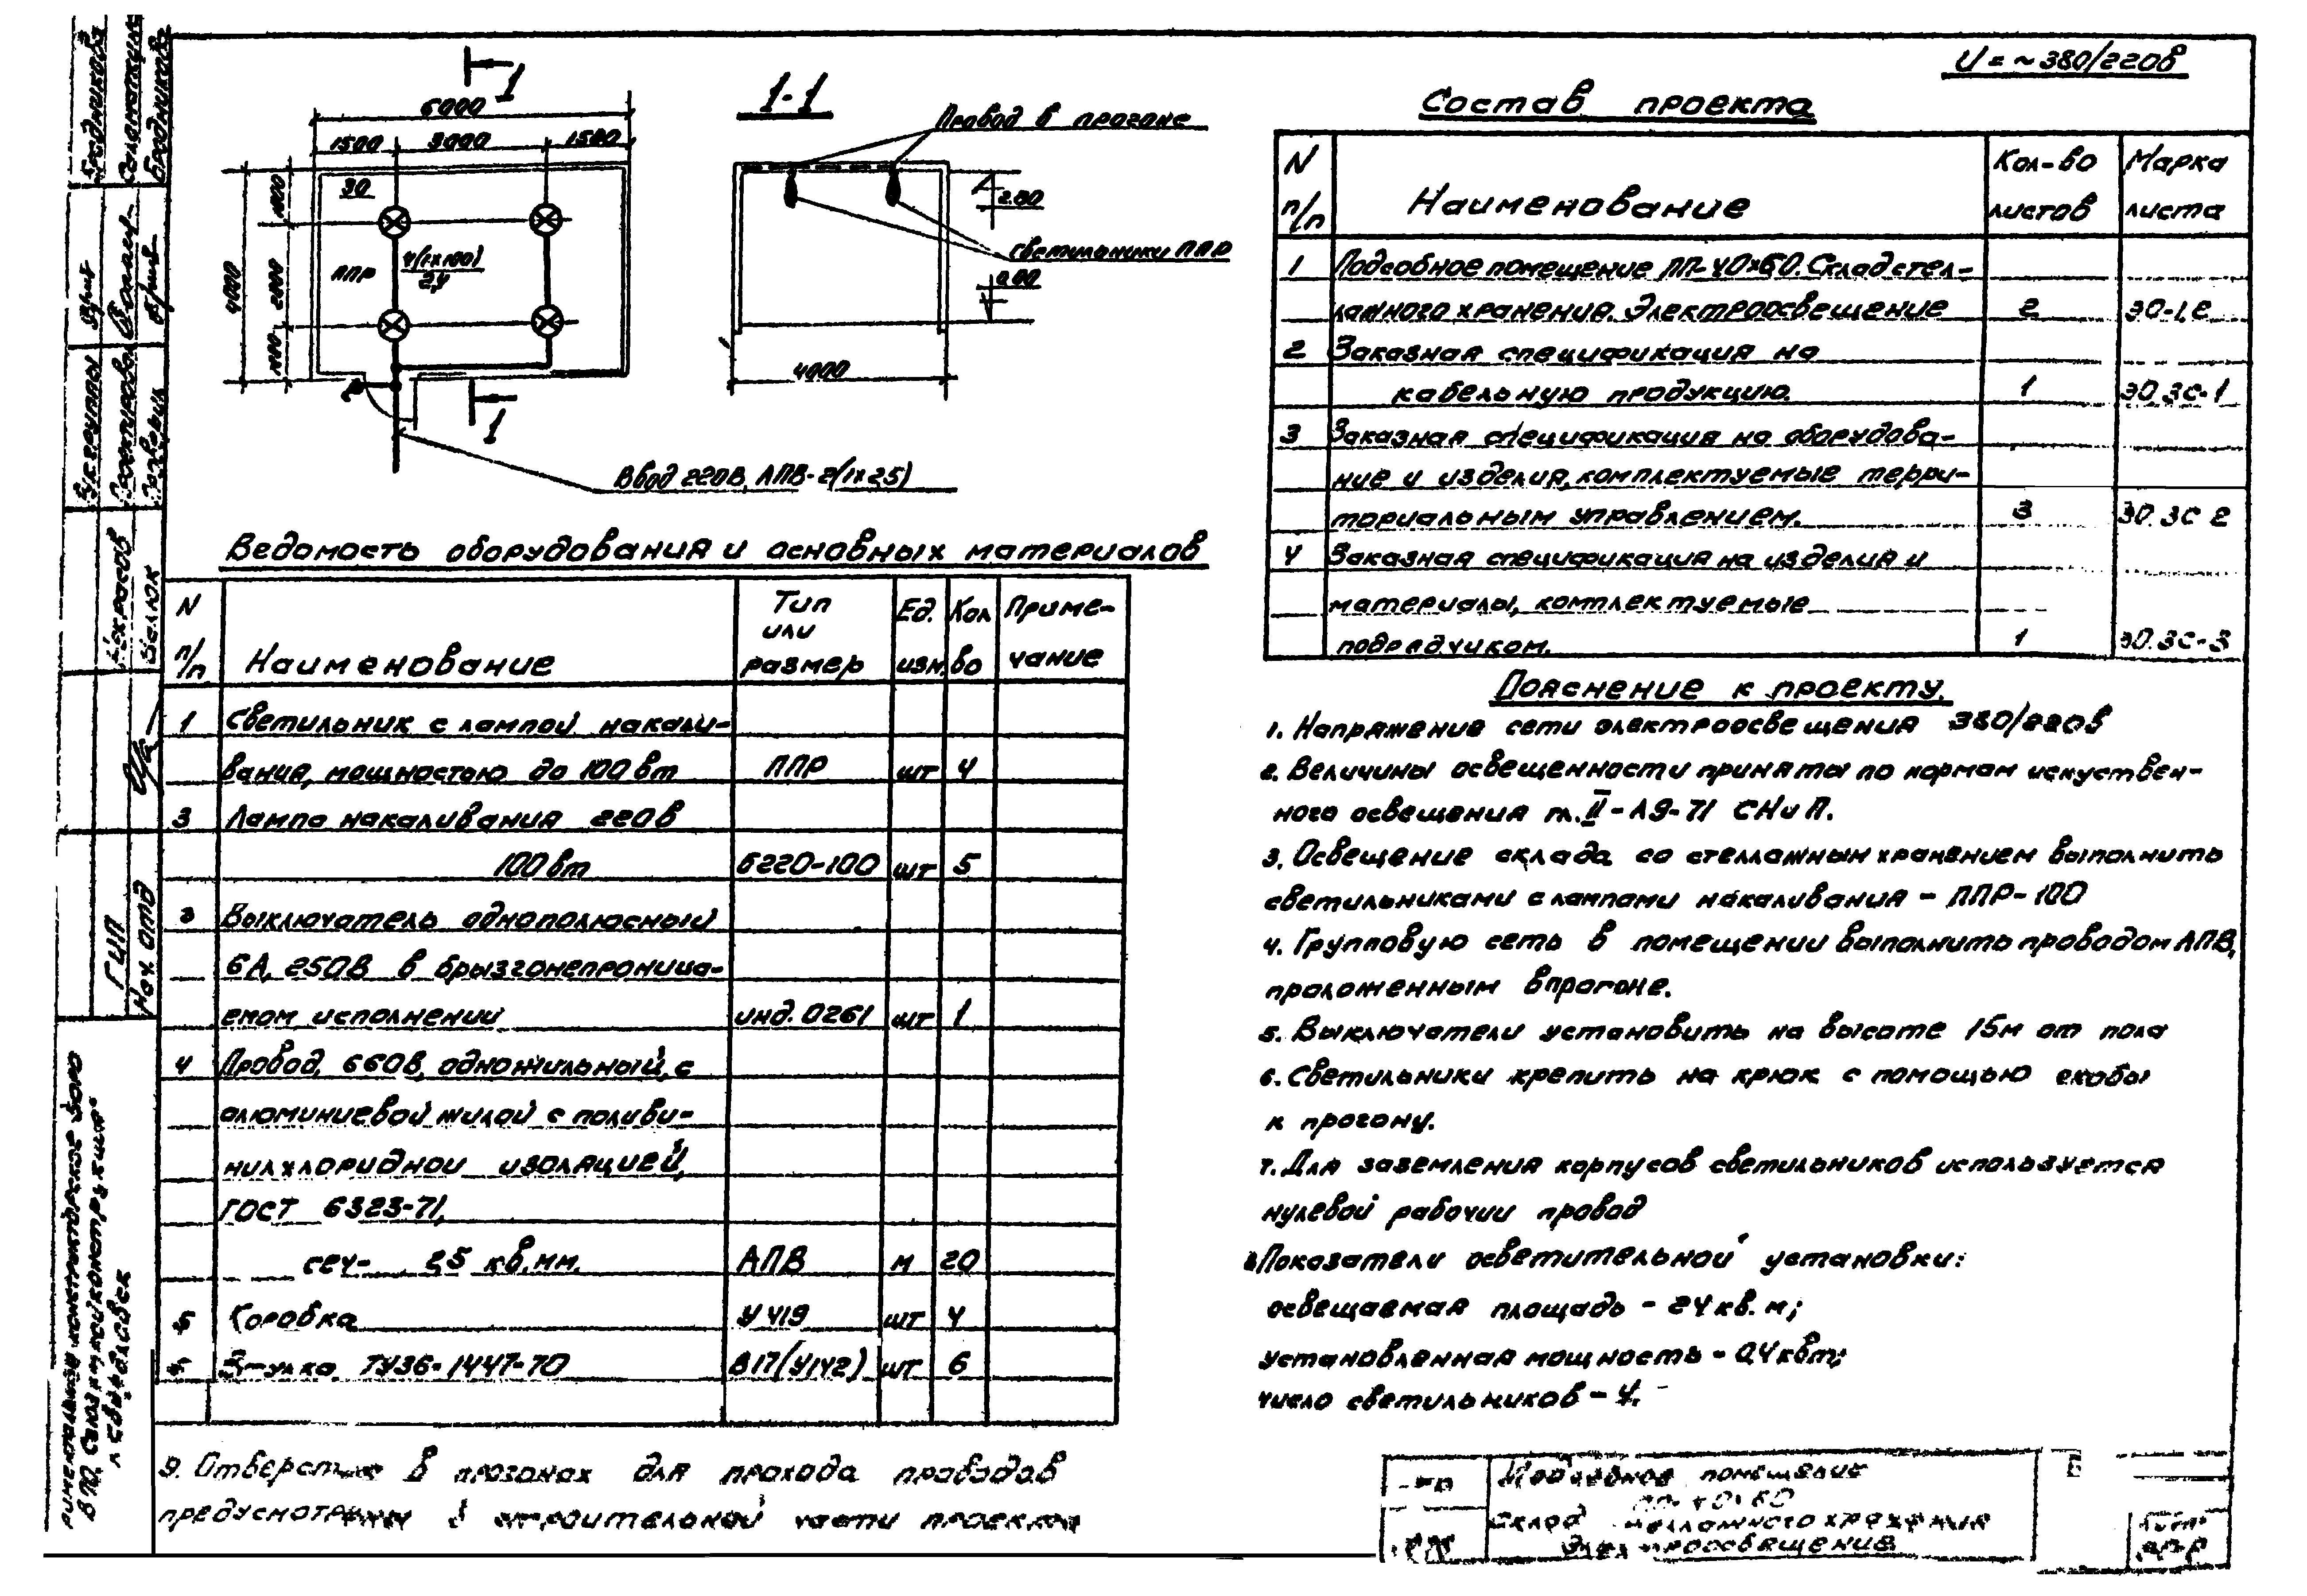 U = ~ 380/220в
1
6000
1500 3000 1500
30
1000
2000
1000
4000
ППР 4(1×100)
2,4
1
Ввод 220В, АПВ-2(1×2,5)
1-1
Провод в прогоне
2.80
Светильники ППР
0.00
4000
Ведомость оборудования и основных материалов
N п/п Наименование Тип или размер Ед. изм. Кол во Примечание
1 Светильник с лампой накали-
вания, мощностью до 100 вт ППР шт 4
3 Лампа накаливания 220в
100 вт Б220-100 шт 5
3 Выключатель однополюсный
6А, 250В в брызгонепроница-
емом исполнении инд. 0261 шт 1
4 Провод, 660В, одножильный, с
алюминиевой жилой с поливи-
нилхлоридной изоляцией,
ГОСТ 6323-71,
сеч- 2,5 кв.мм. АПВ м 20
5 Коробка У419 шт 4
Втулка ТУ36-1447-70 В17(У142) шт 6
9. Отверстия в прогонах для прохода проводов
предусмотрены в строительной части проекта
Состав проекта
N п/п Наименование Кол-во листов Марка листа
1 Подсобное помещение ПП-40×60. Склад стел-
лажного хранения. Электроосвещение 2 ЭО-1,2
2 Заказная спецификация на
кабельную продукцию. 1 ЭО.ЗС-1
3 Заказная спецификация на оборудова-
ние и изделия, комплектуемые терри-
ториальным управлением. 3 ЭО.ЗС 2
4 Заказная спецификация на изделия и
материалы, комплектуемые
подрядчиком. 1 ЭО.ЗС-3
Пояснение к проекту.
1. Напряжение сети электроосвещения 380/220в
2. Величины освещенности приняты по нормам искуствен-
ного освещения гл. II-А9-71 СНиП.
3. Освещение склада со стеллажным хранением выполнить
светильниками с лампами накаливания - ППР-100
4. Групповую сеть в помещении выполнить проводом АПВ,
проложенным в прогоне.
5. Выключатели установить на высоте 1,5м от пола
6. Светильники крепить на крюк с помощью скобы
к прогону.
7. Для заземления корпусов светильников используется
нулевой рабочий провод
8. Показатели осветительной установки:
освещаемая площадь - 24 кв.м;
установленная мощность - 0,4 квт;
число светильников - 4.
Подсобное помещение
ПП-40×60
Склад стеллажного хранения
Электроосвещение
ГИП
Нач. отд
Некрасов
Валюк
Рук. группы
Проектировал
Проверил
Бродникова
Бродникова
В ПО "Союзлегконструкция"
г. Свердловск